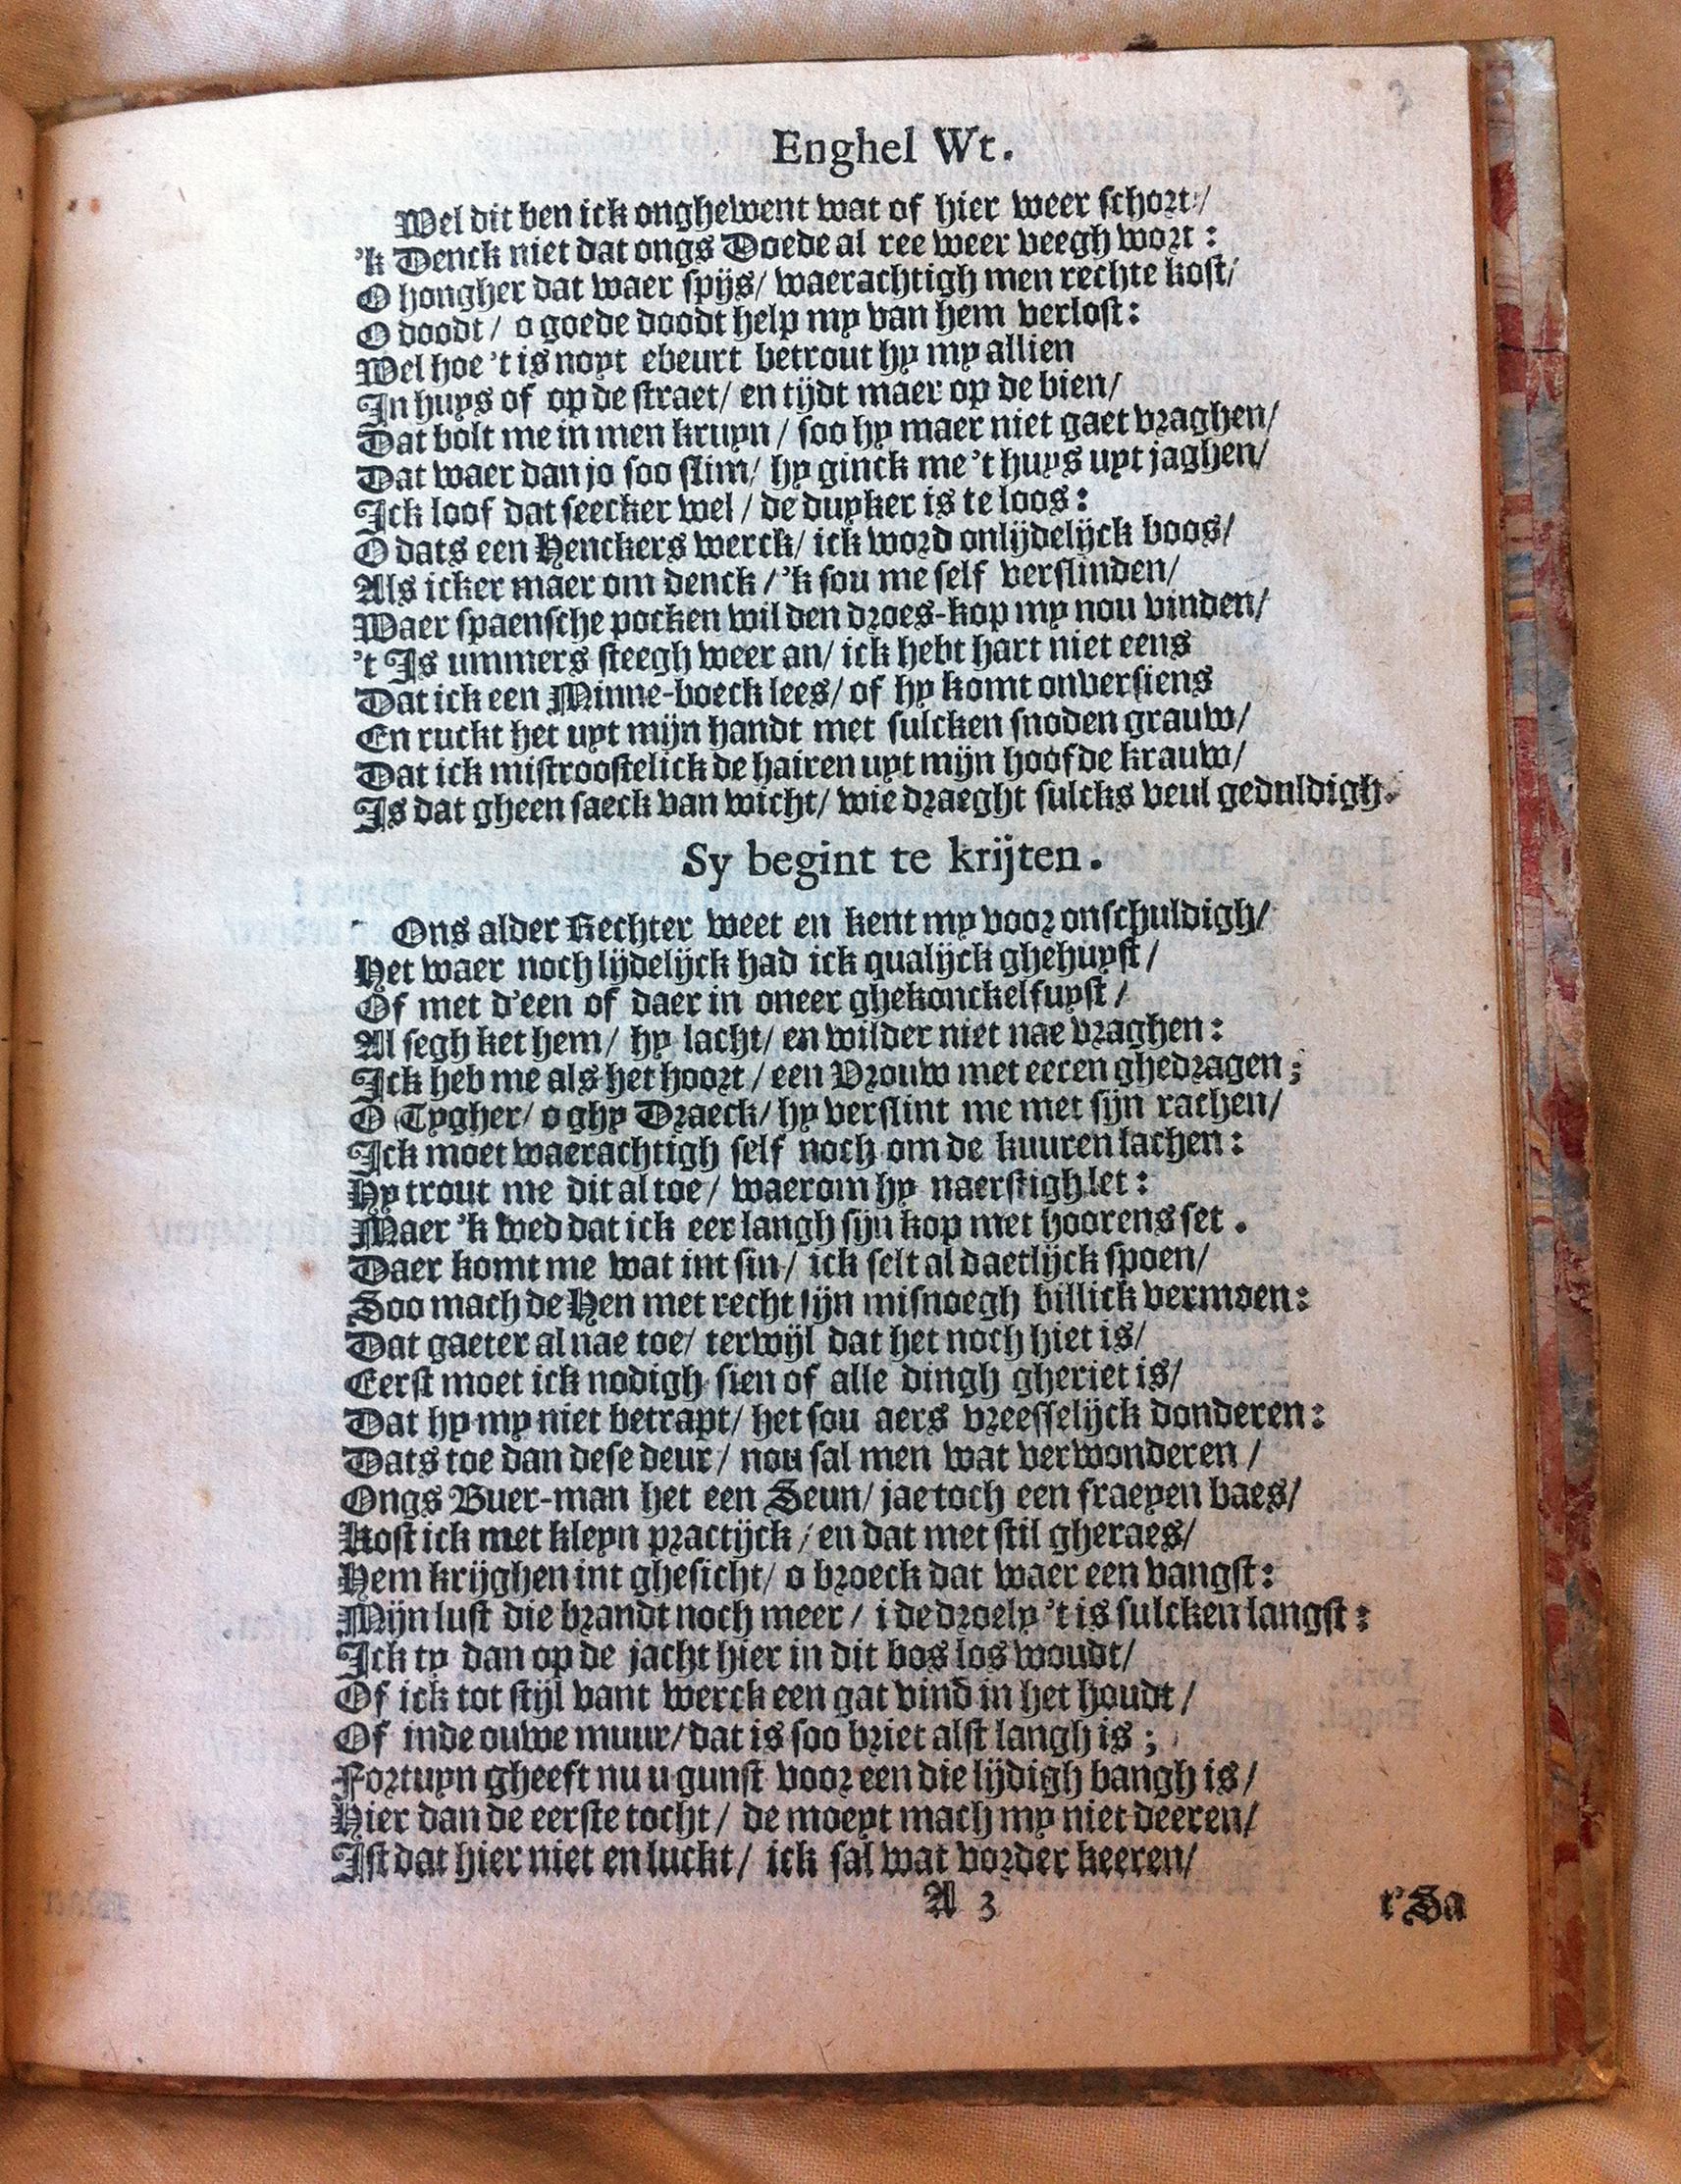 3
Enghel Wt.
Wel dit ben ick onghewent wat of hier weer schort/
'k Denck niet dat ongs Doede al ree weer veegh wort:
O hongher dat waer spijs/ waerachtigh men rechte kost/
O doodt/ o goede doodt help my van hem verlost:
Wel hoe 't is noyt ebeurt betrout hy my allien
In huys of op de straet/ en tijdt maer op de bien/
Dat bolt me in men kruyn/ soo hy maer niet gaet vraghen/
Dat waer dan jo soo slim/ hy ginck me 't huys uyt jaghen/
Ick loof dat seecker wel/ de duyker is te loos:
O dats een Henckers werck/ ick word onlijdelijck boos/
Als icker maer om denck/ 'k sou me self verslinden/
Waer spaensche pocken wil den droes-kop my nou vinden/
't Is ummers steegh weer an/ ick hebt hart niet eens
Dat ick een Minne-boeck lees/ of hy komt onversiens
En ruckt het uyt mijn handt met sulcken snoden grauw/
Dat ick mistroostelick de hairen uyt mijn hoofde krauw/
Is dat gheen saeck van wicht/ wie draeght sulcks veul geduldigh.
Sy begint te krijten.
Ons alder Rechter weet en kent my voor onschuldigh/
Het waer noch lijdelijck had ick qualijck ghehuyst/
Of met d'een of daer in oneer ghekonckelfuyst/
Al segh ket hem/ hy lacht/ en wilder niet nae vraghen:
Ick heb me als het hoort/ een Vrouw met eeren ghedragen;
O Tygher/ o ghy Draeck/ hy verslint me met sijn rachen/
Ick moet waerachtigh self noch om de kuuren lachen:
Hy trout me dit al toe/ waerom hy naerstigh let:
Maer 'k wed dat ick eer langh sijn kop met hoorens set.
Daer komt me wat int sin/ ick selt al daetlijck spoen/
Soo mach de Hen met recht sijn misnoegh billick vermoen:
Dat gaeter al nae toe/ terwijl dat het noch hiet is/
Eerst moet ick nodigh sien of alle dingh gheriet is/
Dat hy my niet betrapt/ het sou aers vreesselijck donderen:
Dats toe dan dese deur/ nou sal men wat verwonderen/
Ongs Buer-man het een Seun/ jae toch een fraeyen baes/
Kost ick met kleyn practijck/ en dat met stil gheraes/
Hem krijghen int ghesicht/ o broeck dat waer een vangst:
Mijn lust die brandt noch meer/ i de droely 't is sulcken langst:
Ick ty dan op de jacht hier in dit bos los woudt/
Of ick tot stijl vant werck een gat vind in het houdt/
Of inde ouwe muur/ dat is soo briet alst langh is;
Fortuyn gheeft nu u gunst voor een die lijdigh bangh is/
Hier dan de eerste tocht/ de moeyt mach my niet deeren/
Ist dat hier niet en luckt/ ick sal wat vorder keeren/
A 3
t'Sa